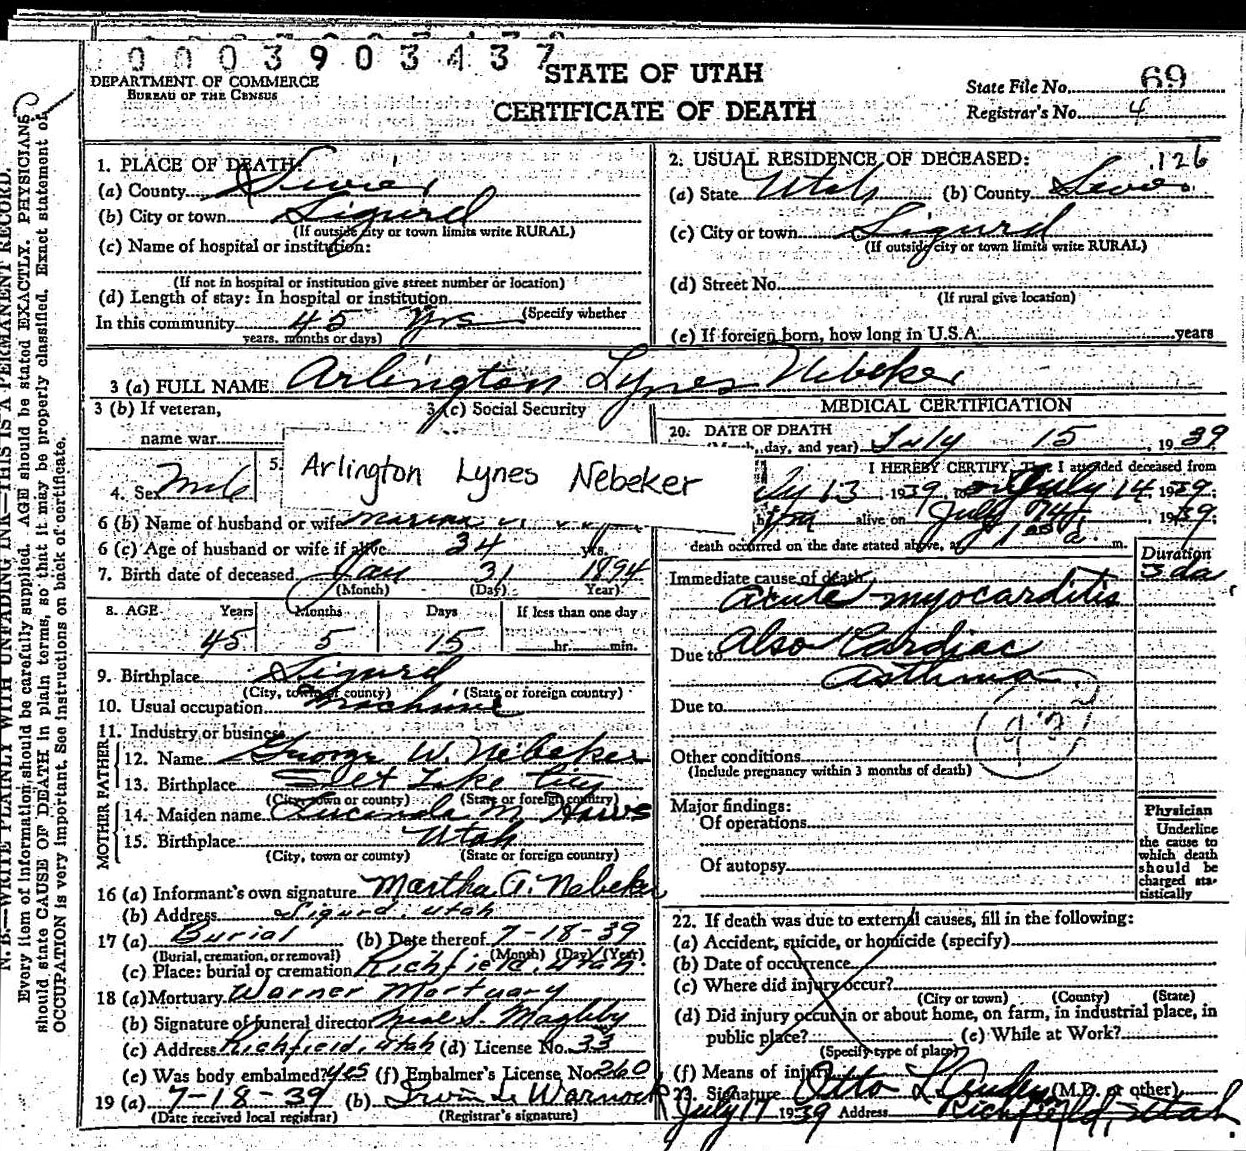 0003903437
DEPARTMENT OF COMMERCE
BUREAU OF THE CENSUS
STATE OF UTAH
CERTIFICATE OF DEATH
State File No. 69
Registrar's No. 4
N. B.—WRITE PLAINLY WITH UNFADING INK—THIS IS A PERMANENT RECORD.
Every item of information should be carefully supplied. AGE should be stated EXACTLY. PHYSICIANS
should state CAUSE OF DEATH in plain terms, so that it may be properly classified. Exact statement of
OCCUPATION is very important. See instructions on back of certificate.
1. PLACE OF DEATH:
(a) County Sevier
(b) City or town Sigurd
(If outside city or town limits write RURAL)
(c) Name of hospital or institution:
(If not in hospital or institution give street number or location)
(d) Length of stay: In hospital or institution
(Specify whether
In this community 45 yrs
years, months or days)
2. USUAL RESIDENCE OF DECEASED: 126
(a) State Utah (b) County Sevier
(c) City or town Sigurd
(If outside city or town limits write RURAL)
(d) Street No.
(If rural give location)
(e) If foreign born, how long in U.S.A. years
3 (a) FULL NAME Arlington Lynes Nebeker
3 (b) If veteran,
name war
3 (c) Social Security
Arlington Lynes Nebeker
4. Sex Male
5.
6 (b) Name of husband or wife
6 (c) Age of husband or wife if alive 34 yrs.
7. Birth date of deceased Jan 31 1894
(Month) (Day) Year)
8. AGE Years Months Days If less than one day
45 5 15 hr. min.
9. Birthplace Sigurd
(City, town or county) (State or foreign country)
10. Usual occupation
11. Industry or business
FATHER
12. Name George W. Nebeker
13. Birthplace Salt Lake City
(City, town or county) (State or foreign country)
MOTHER
14. Maiden name Lucinda M. Haws
15. Birthplace Utah
(City, town or county) (State or foreign country)
16 (a) Informant's own signature Martha A. Nebeker
(b) Address Sigurd, Utah
17 (a) Burial (b) Date thereof 7-18-39
(Burial, cremation, or removal) (Month) (Day) (Year)
(c) Place: burial or cremation Richfield, Utah
18 (a) Mortuary Warner Mortuary
(b) Signature of funeral director Neal S. Magleby
(c) Address Richfield, Utah (d) License No. 33
(e) Was body embalmed? yes (f) Embalmer's License No. 260
19 (a) 7-18-39 (b) Irvin L. Warnock
(Date received local registrar) (Registrar's signature)
MEDICAL CERTIFICATION
20. DATE OF DEATH
(Month, day, and year) July 15, 1939
I HEREBY CERTIFY, That I attended deceased from
July 13 1939, to July 14 1939;
alive on July 14, 1939;
death occurred on the date stated above, at m.
Duration
Immediate cause of death 3 da
Acute myocarditis
Due to Also Cardiac
Asthma
Due to
Other conditions
(Include pregnancy within 3 months of death)
Major findings:
Of operations
Of autopsy
Physician
Underline
the cause to
which death
should be
charged sta-
tistically
22. If death was due to external causes, fill in the following:
(a) Accident, suicide, or homicide (specify)
(b) Date of occurrence
(c) Where did injury occur?
(City or town) (County) (State)
(d) Did injury occur in or about home, on farm, in industrial place, in
public place? (e) While at Work?
(Specify type of place)
(f) Means of injury
23. Signature Otto L. (M.D. or other)
July 17 1939 Address Richfield, Utah